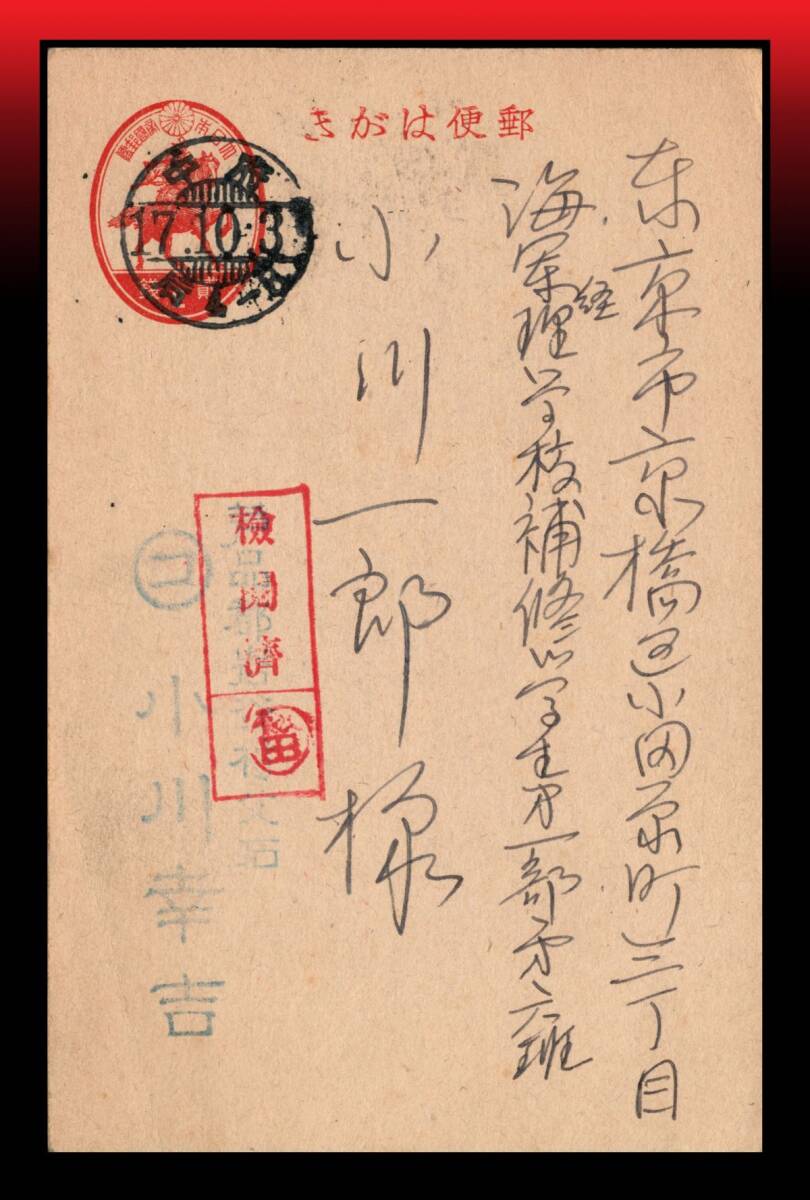 郵便はがき
東京市京橋区小田原町三丁目
海軍経理学校補修学生第一部第六班
小川一郎様
17.10.3
檢閲濟
コ
小川幸吉